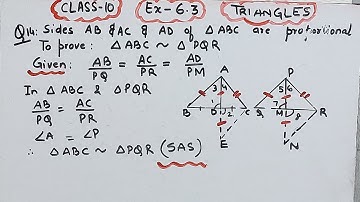 CLASS-10 Ex-6.3 TRIANGLES
Q14: Sides AB & AC & AD of △ABC are proportional
To prove: △ABC ~ △PQR
Given: AB/PQ = AC/PR = AD/PM
In △ABC & △PQR
AB/PQ = AC/PR
∠A = ∠P
∴ △ABC ~ △PQR (SAS)
A
3 4
B D 2 C
E
P
5 6
Q 7 M 8 R
N